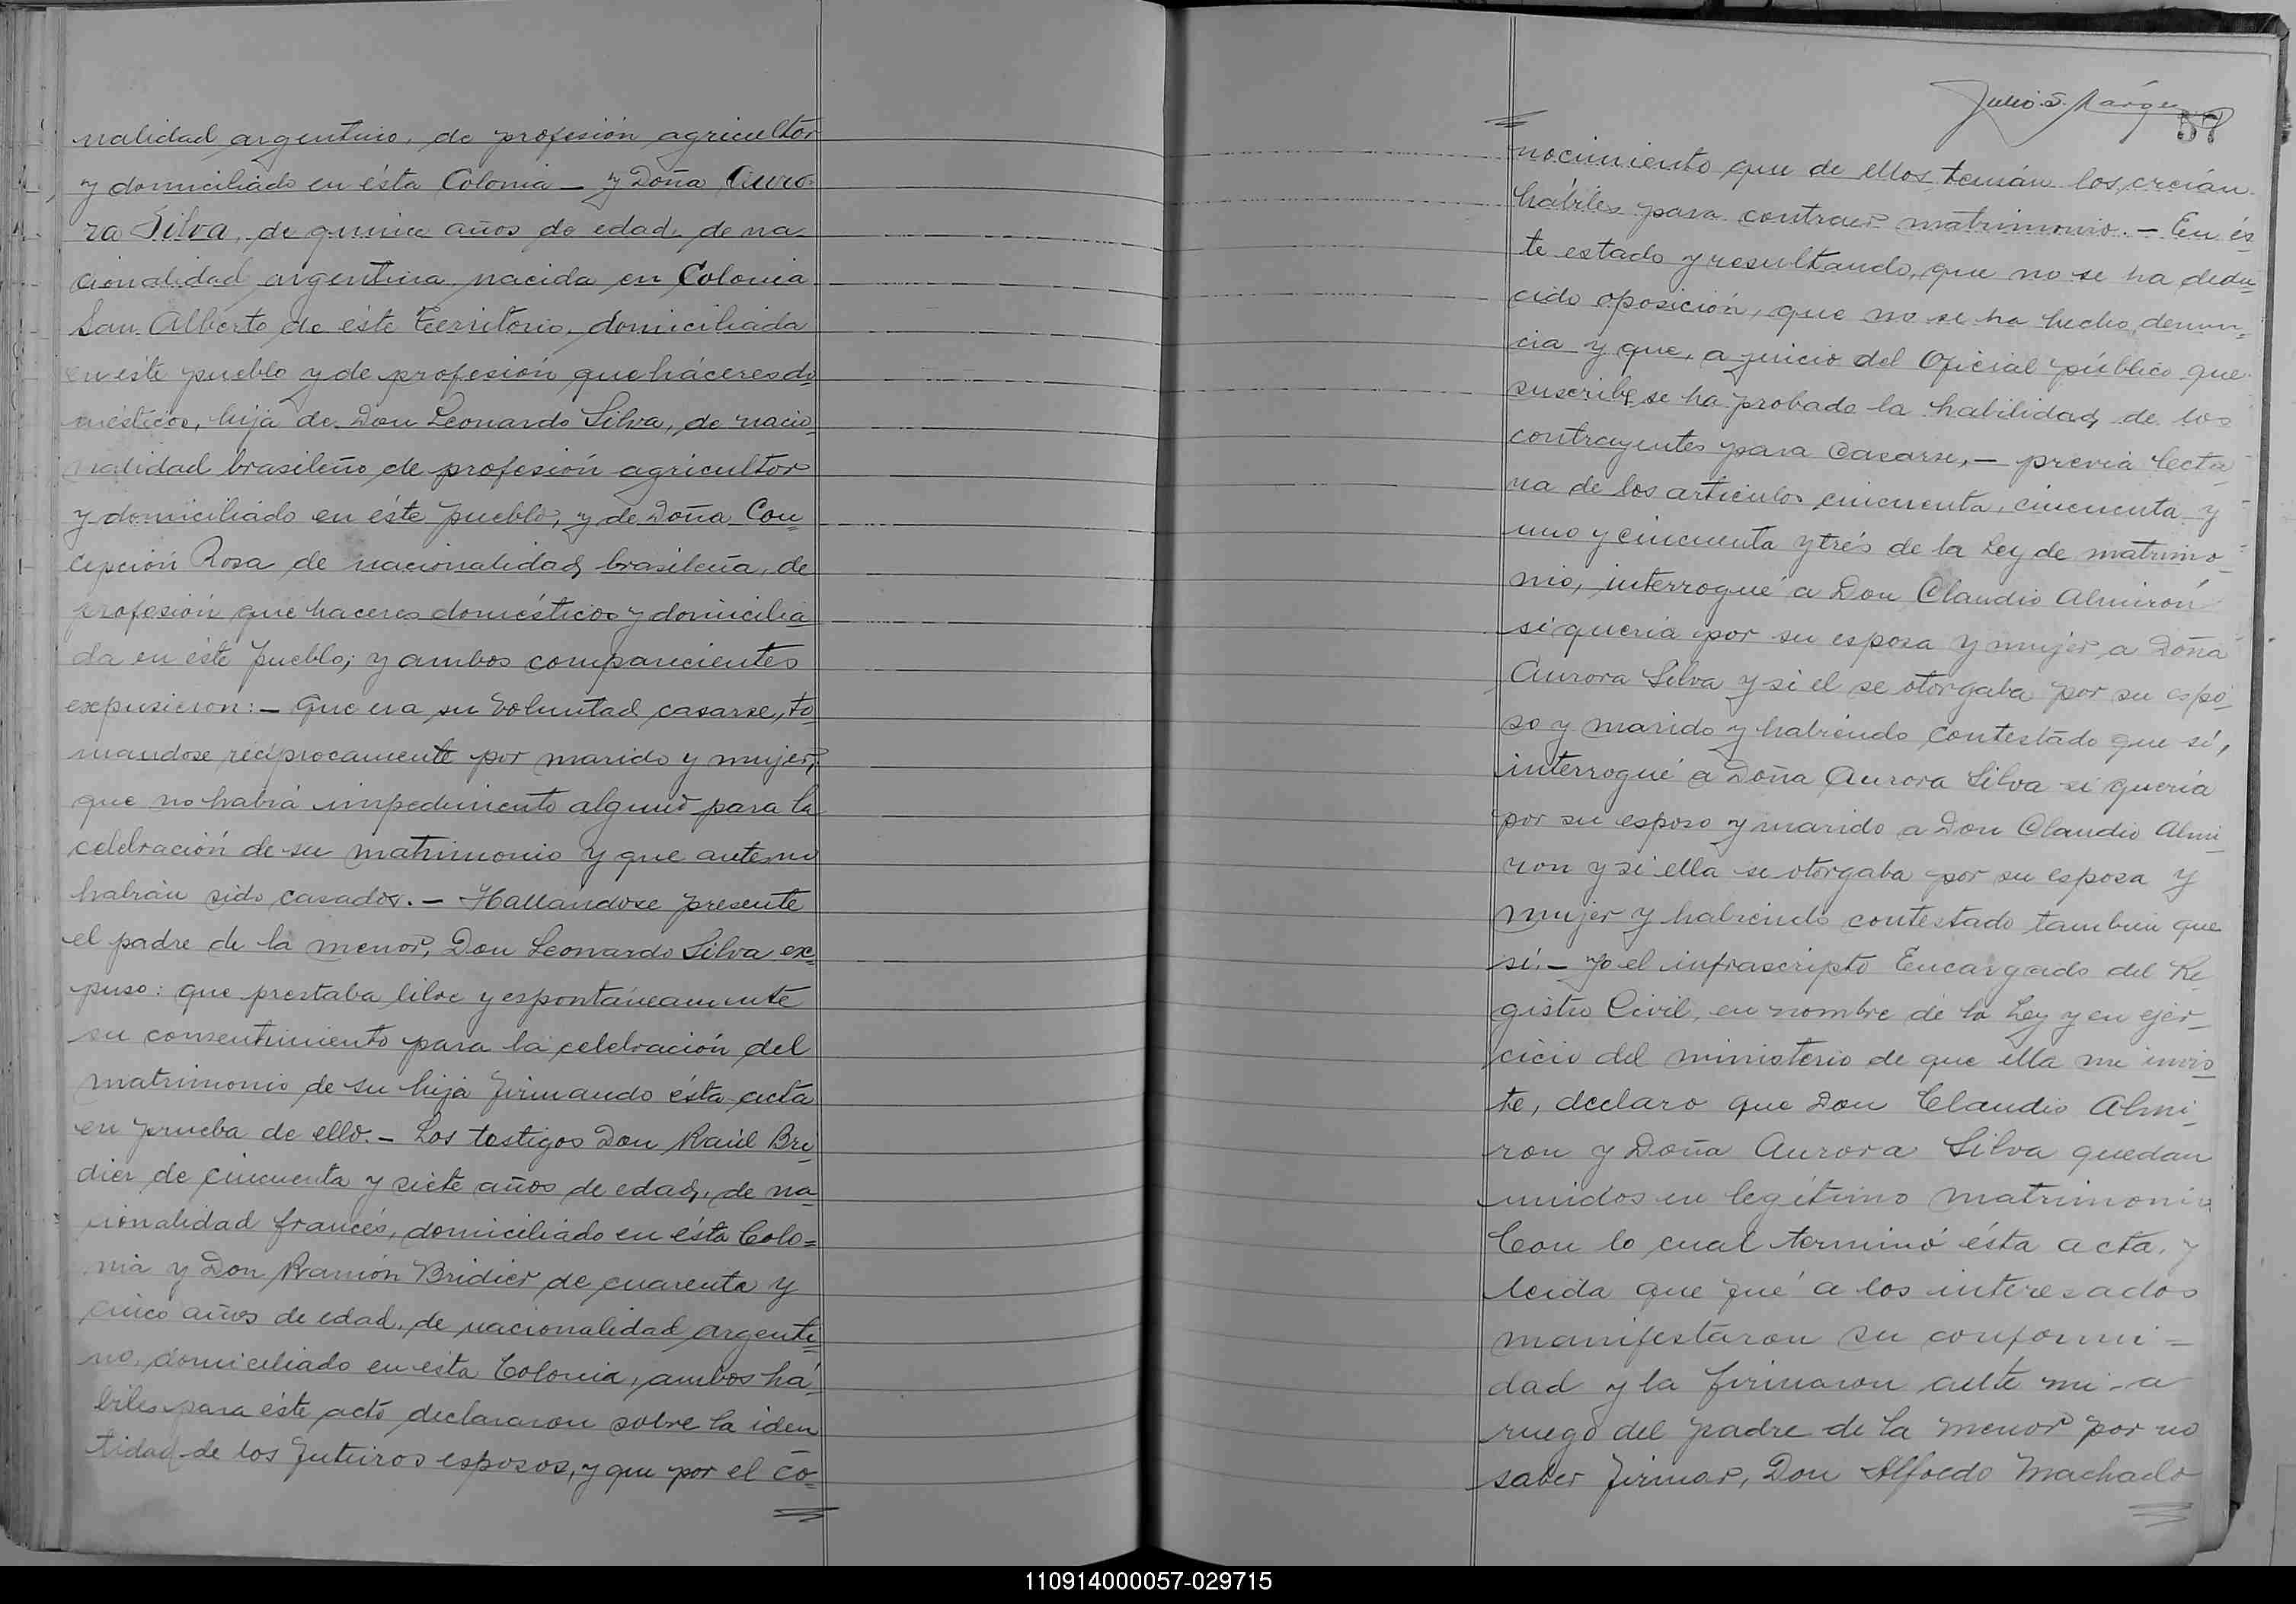 nalidad argentino, de profesión agricultor
y domiciliado en ésta Colonia — y Doña Auro-
ra Silva, de quince años de edad, de na-
cionalidad argentina, nacida en Colonia
San Alberto de éste Territorio, domiciliada
en éste pueblo y de profesión que háceres do-
mésticos, hija de Don Leonardo Silva, de nacio-
nalidad brasileño de profesión agricultor
y domiciliado en éste pueblo, y de Doña Con-
cepción Rosa de nacionalidad brasileña, de
profesión que haceres domésticos y domicilia-
da en éste pueblo; y ambos comparecientes
expusieron: — Que era su voluntad casarse, to-
mandose recíprocamente por marido y mujer,
que no había impedimento alguno para la
celebración de su matrimonio y que antes no
habían sido casados. — Hallandose presente
el padre de la menor, Don Leonardo Silva ex-
puso: que prestaba libre y espontáneamente
su consentimiento para la celebración del
matrimonio de su hija firmando ésta acta
en prueba de ello. — Los testigos Don Raúl Bri-
dier de cincuenta y siete años de edad, de na-
cionalidad francés, domiciliado en ésta Colo=
nia y Don Ramón Bridier de cuarenta y
cinco años de edad, de nacionalidad argenti-
no, domiciliado en esta Colonia, ambos há-
biles para éste acto declararon sobre la iden-
tidad de los futuros esposos, y que por el co-
Julio S.
57
nocimiento que de ellos tenían los creían
hábiles para contraer matrimonio. — En és-
te estado y resultando, que no se ha dedu-
cido oposición, que no se ha hecho denun-
cia y que, a juicio del Oficial público que
suscribe, se ha probado la habilidad de los
contrayentes para Casarse, — previa lectu-
ra de los artículos cincuenta, cincuenta y
uno y cincuenta y trés de la Ley de matrimo-
nio, interrogué a Don Claudio Almirón
si quería por su esposa y mujer a Doña
Aurora Silva y si el se otorgaba por su espo-
so y marido y habiendo contestado que sí,
interrogué a Doña Aurora Silva si quería
por su esposo y marido a Don Claudio Almi-
ron y si ella se otorgaba por su esposa y
mujer y habiendo contestado tambien que
sí. — Yo el infrascripto Encargado del Re-
gistro Civil, en nombre de la Ley y en ejer-
cicio del ministerio de que ella me invis-
te, declaro que Don Claudio Almi-
ron y Doña Aurora Silva quedan
unidos en legítimo matrimonio
Con lo cual terminó ésta acta, y
leida que fué a los interesados
manifestaron su conformi=
dad y la firmaron ante mi — a
ruego del padre de la menor por no
saber firmar, Don Alfredo Machado
110914000057-029715